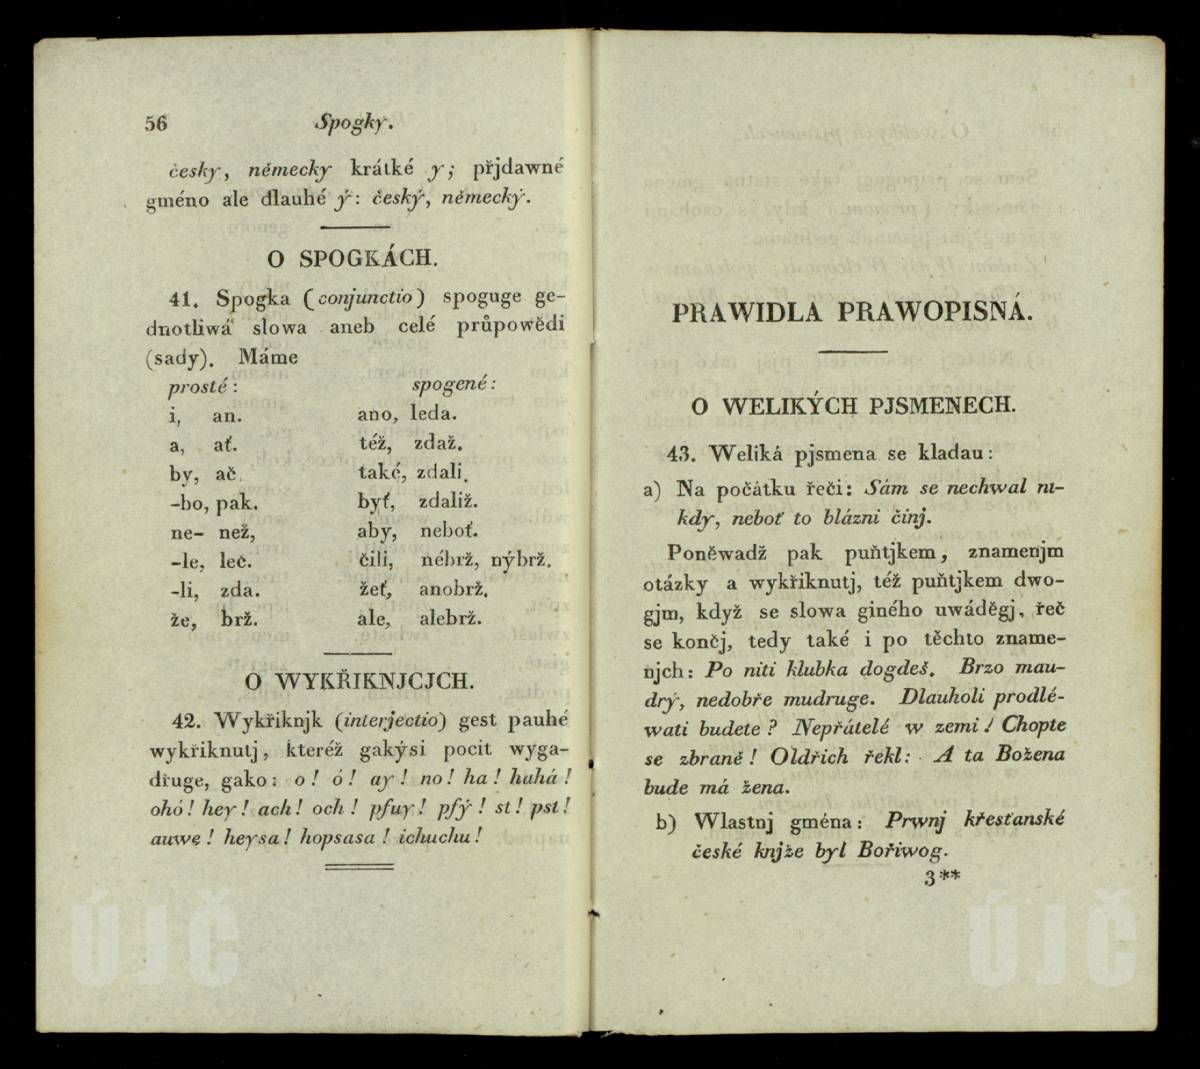 56 Spogky.
česky, německy krátké y; přjdawné
gméno ale dlauhé ý: český, německý.
O SPOGKÁCH.
41. Spogka (conjunctio) spoguge ge-
dnotliwá slowa aneb celé průpowědi
(sady). Máme
prosté: spogené:
i, an. ano, leda.
a, ať. též, zdaž.
by, ač. také, zdali.
-bo, pak. byť, zdaliž.
ne- než, aby, neboť.
-le, leč. čili, nébrž, nýbrž.
-li, zda. žeť, anobrž.
že, brž. ale, alebrž.
O WYKŘIKNJCJCH.
42. Wykřiknjk (interjectio) gest pauhé
wykřiknutj, kteréž gakýsi pocit wyga-
dřuge, gako: o! ó! ay! no! ha! huhá!
ohó! hey! ach! och! pfuy! pfý! st! pst!
auwe! heysa! hopsasa! ichuchu!
PRAWIDLA PRAWOPISNÁ.
O WELIKÝCH PJSMENECH.
43. Weliká pjsmena se kladau:
a) Na počátku řeči: Sám se nechwal ni-
kdy, neboť to blázni činj.
Poněwadž pak puňtjkem, znamenjm
otázky a wykřiknutj, též puňtjkem dwo-
gjm, když se slowa giného uwáděgj, řeč
se končj, tedy také i po těchto zname-
njch: Po niti klubka dogdeš. Brzo mau-
drý, nedobře mudruge. Dlauholi prodlé-
wati budete? Nepřátelé w zemi! Chopte
se zbraně! Oldřich řekl: A ta Božena
bude má žena.
b) Wlastnj gména: Prwnj křesťanské
české knjže byl Bořiwog.
3**
ÚJČ
ÚJČ